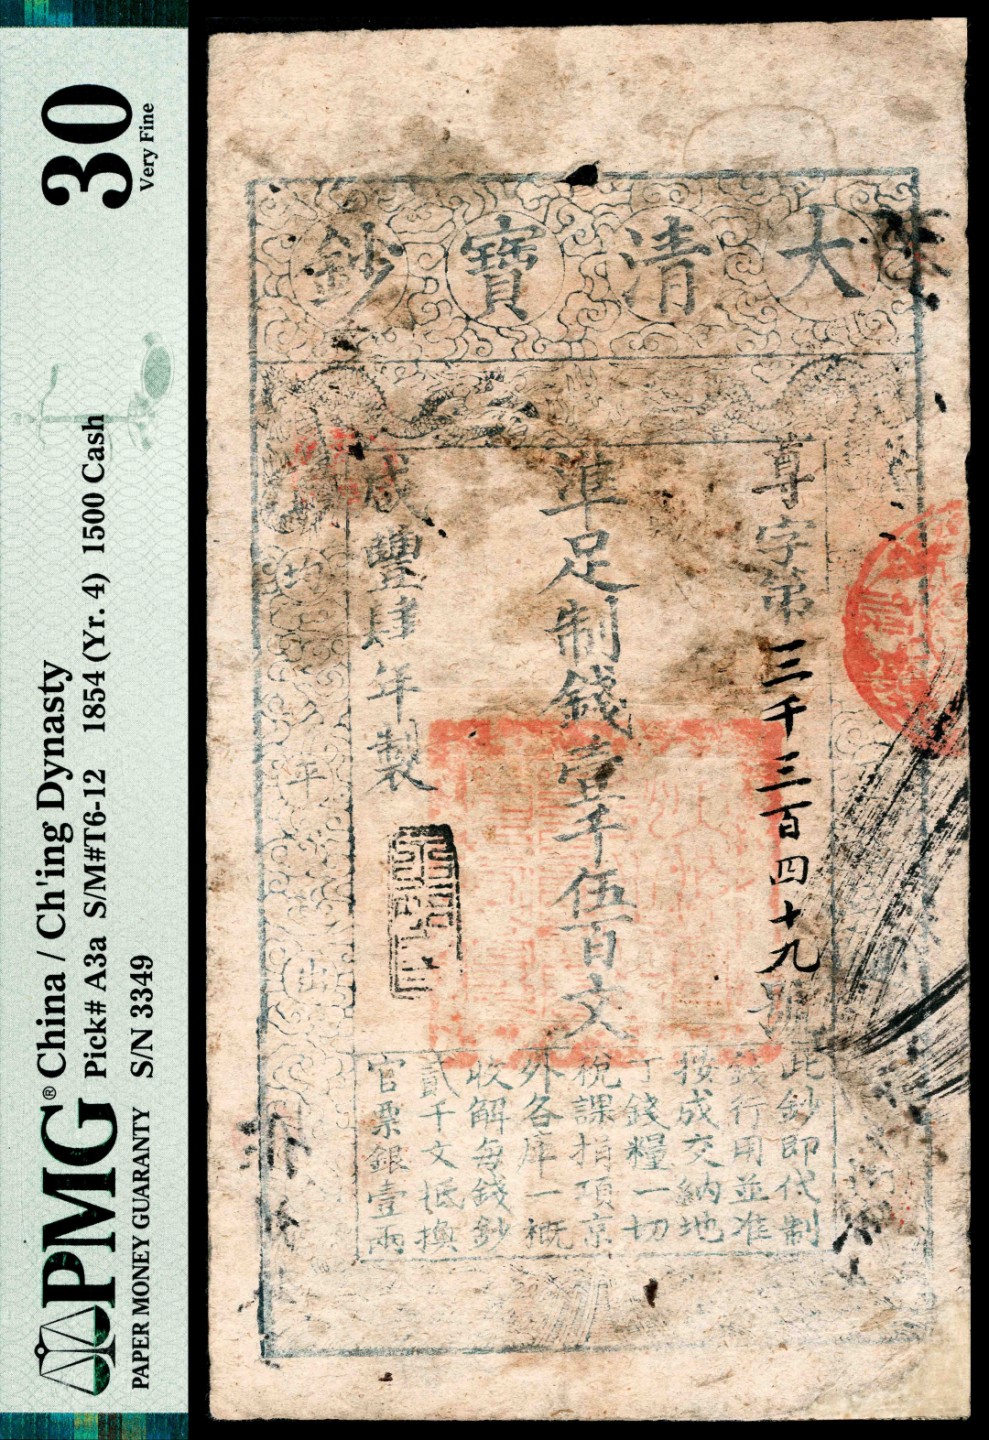 PMG® China / Ch'ing Dynasty
Pick# A3a S/M#T6-12 1854 (Yr. 4) 1500 Cash
PAPER MONEY GUARANTY S/N 3349
30
Very Fine
大清寶鈔
尊字第三千三百四十九號
準足制錢壹千伍百文
咸豐肆年製
此鈔即代制
錢行用並准
按成交納地
丁錢糧一切
稅課捐項京
外各庫一概
收解每錢鈔
貳千文抵換
官票銀壹兩
均
年
出